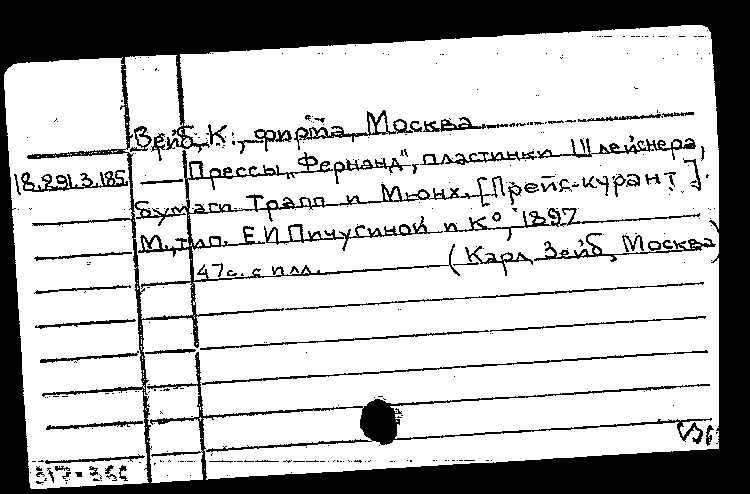 Зейб, К., фирма, Москва
18.291.3.185 Прессы „Фернанд", пластинки Шлейснера,
бумаги Трапп и Мюнх. [Прейс-курант].
М., тип. Е.И Пичугиной и К°, 1897
47с. с илл. (Карл Зейб, Москва)
317-366